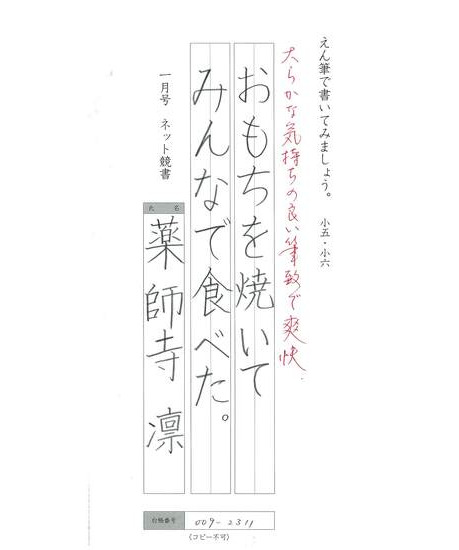 えん筆で書いてみましょう。 小五・小六
大らかな気持ちの良い筆致で爽快.
おもちを焼いて
みんなで食べた。
一月号 ネット競書
氏名
薬師寺 凛
台帳番号 009-2311
〈コピー不可〉